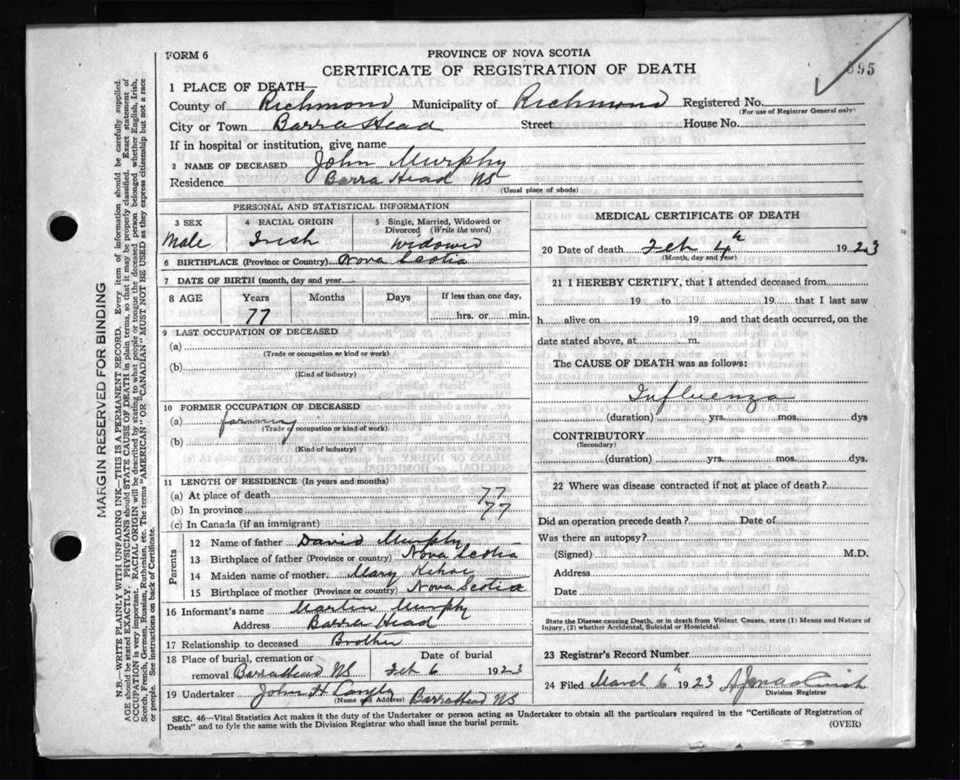 FORM 6
PROVINCE OF NOVA SCOTIA
CERTIFICATE OF REGISTRATION OF DEATH
595
1 PLACE OF DEATH
County of Richmond Municipality of Richmond Registered No.
(For use of Registrar General only)
City or Town Barra Head Street House No.
If in hospital or institution, give name
2 NAME OF DECEASED John Murphy
Residence Barra Head NS
(Usual place of abode)
PERSONAL AND STATISTICAL INFORMATION
3 SEX Male
4 RACIAL ORIGIN Irish
5 Single, Married, Widowed or Divorced (Write the word) Widowed
6 BIRTHPLACE (Province or Country) Nova Scotia
7 DATE OF BIRTH (month, day and year)
8 AGE Years Months Days If less than one day,
77 hrs. or min.
9 LAST OCCUPATION OF DECEASED
(a)
(Trade or occupation or kind of work)
(b)
(Kind of industry)
10 FORMER OCCUPATION OF DECEASED
(a) farming
(Trade or occupation or kind of work)
(b)
(Kind of industry)
11 LENGTH OF RESIDENCE (In years and months)
(a) At place of death 77
(b) In province 77
(c) In Canada (if an immigrant)
Parents
12 Name of father David Murphy
13 Birthplace of father (Province or country) Nova Scotia
14 Maiden name of mother Mary Kehoe
15 Birthplace of mother (Province or country) Nova Scotia
16 Informant's name Martin Murphy
Address Barra Head
17 Relationship to deceased Brother
18 Place of burial, cremation or removal Barra Head NS
Date of burial Feb 6 1923
19 Undertaker John H Barra Head NS
(Name and Address)
MEDICAL CERTIFICATE OF DEATH
20 Date of death Feb 4th 1923
(Month, day and year)
21 I HEREBY CERTIFY, that I attended deceased from
19 to 19 that I last saw
h alive on 19 and that death occurred, on the
date stated above, at m.
The CAUSE OF DEATH was as follows:
Influenza
(duration) yrs. mos. dys
CONTRIBUTORY
(Secondary)
(duration) yrs. mos. dys.
22 Where was disease contracted if not at place of death?
Did an operation precede death? Date of
Was there an autopsy?
(Signed) M.D.
Address
Date
State the Disease causing Death, or in death from Violent Causes, state (1) Means and Nature of
Injury, (2) whether Accidental, Suicidal or Homicidal.
23 Registrar's Record Number
24 Filed March 6th 1923
Division Registrar
SEC. 46—Vital Statistics Act makes it the duty of the Undertaker or person acting as Undertaker to obtain all the particulars required in the "Certificate of Registration of
Death" and to fyle the same with the Division Registrar who shall issue the burial permit.
(OVER)
MARGIN RESERVED FOR BINDING
N.B.—WRITE PLAINLY, WITH UNFADING INK—THIS IS A PERMANENT RECORD. Every item of information should be carefully supplied.
AGE should be stated EXACTLY. PHYSICIANS should STATE CAUSE OF DEATH in plain terms, so that it may be properly classified. Exact statement of
OCCUPATION is very important. RACIAL ORIGIN will be described by stating to what people or tongue the deceased person belonged whether English, Irish,
Scotch, French, German, Russian, Ruthenian, etc. The terms "AMERICAN" OR "CANADIAN" MUST NOT BE USED as they express citizenship but not a race
or people. See instructions on back of Certificate.